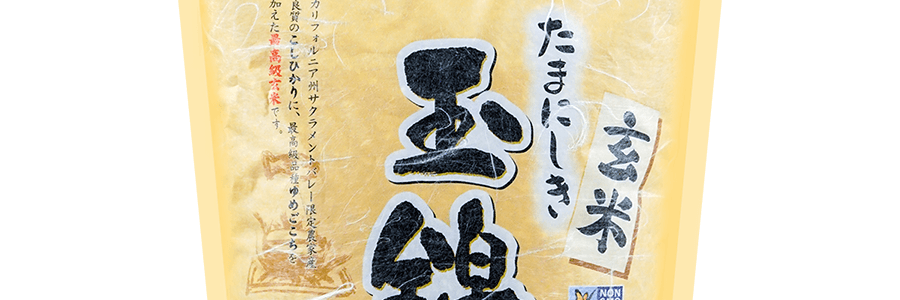 玄米
たまにしき
玉錦
カリフォルニア州サクラメントバレー限定農家産
良質のこしひかりに、最高級品種ゆめごこちを
加えた最高級玄米です。
NON